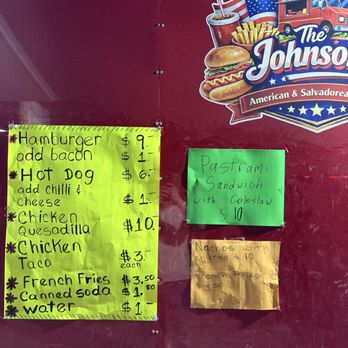 The
Johnso
American & Salvadorea
* Hamburger $9-
add bacon $1-
* Hot Dog $6-
add chilli &
cheese $1-
* Chicken
Quesadilla $10-
* Chicken
Taco $3- each
* French Fries $3.50
* Canned soda $1.50
* water $1-
Pastrami
Sandwich
with Coleslaw
$10
Nachos with
chicken $10
French Fries